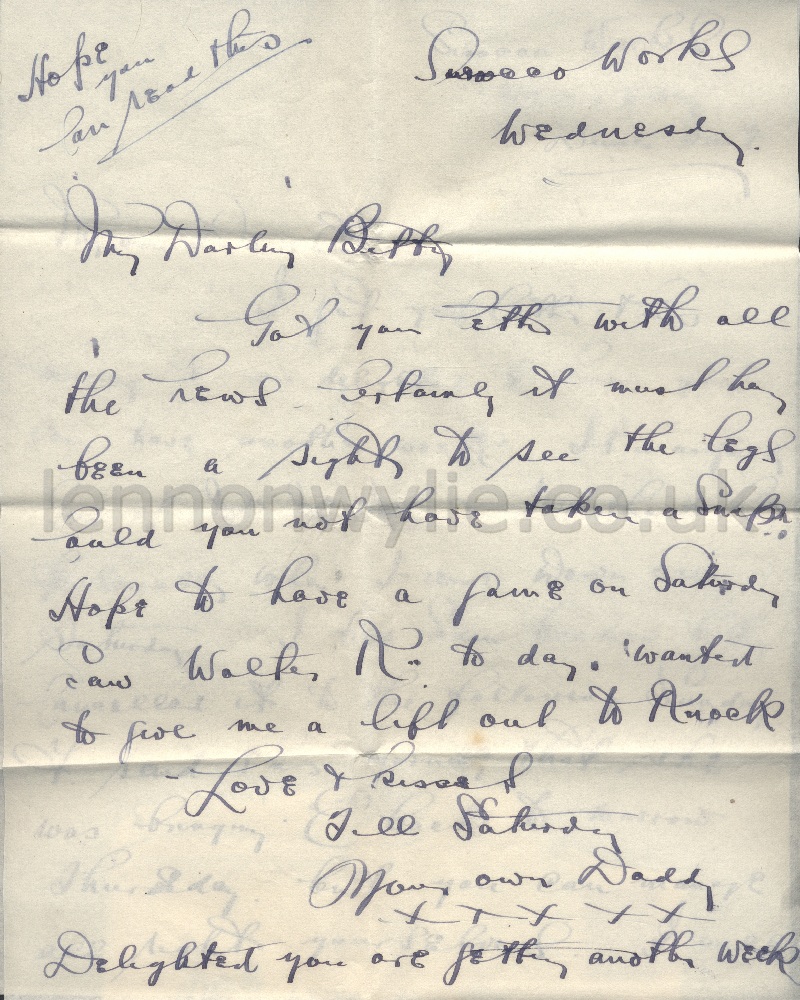 Hope
you
Can read this
Sirocco Works
Wednesday.
My Darling Betty
Got your letter with all
the news. Certainly it must have
been a sight to see the legs
lennonwylie.co.uk
Could you not have taken a Snap.
Hope to have a game on Saturday
Saw Walter R.. to day. wanted
to give me a lift out to Knock
Love & kisses
Till Saturday
Your own Daddy
x x x x x
Delighted you are getting another week